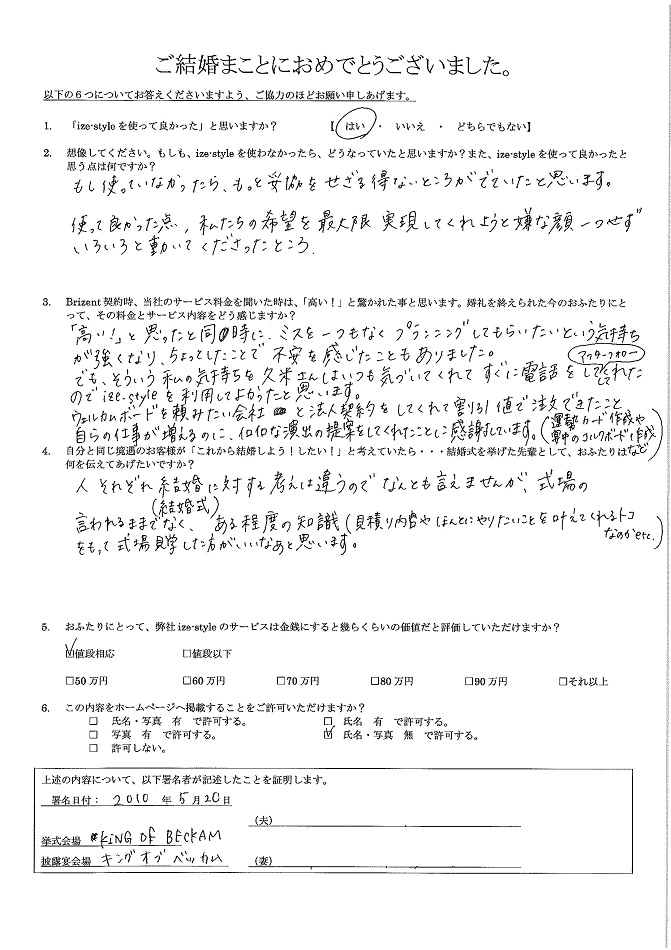 ご結婚まことにおめでとうございました。
以下の６つについてお答えくださいますよう、ご協力のほどお願い申しあげます。
1. 「ize-style を使って良かった」と思いますか？ 【 はい ・ いいえ ・ どちらでもない】
2. 想像してください。もしも、ize-style を使わなかったら、どうなっていたと思いますか？また、ize-style を使って良かったと
思う点は何ですか？
もし使っていなかったら、もっと妥協をせざる得ないところがでていたと思います。
使って良かった点，私たちの希望を最大限 実現してくれようと嫌な顔一つせず
いろいろと動いてくださったところ．
3. Brizent 契約時、当社のサービス料金を聞いた時は、「高い！」と驚かれた事と思います。婚礼を終えられた今のおふたりにと
って、その料金とサービス内容をどう感じますか？
「高い！」と思ったと同時に、ミスを一つもなくプランニングしてもらいたいという気持ち
が強くなり、ちょっとしたことで不安を感じたこともありました。
アフターフォロー
でも、そういう私の気持ちを久米さんはいつも気づいてくれてすぐに電話をしてくれた
ので ize-style を利用してよかったと思います。
ウェルカムボードを頼みたい会社と法人契約をしてくれて割引値で注文できたこと
自らの仕事が増えるのに、色々な演出の提案をしてくれたことに感謝しています。(運転カード作成や
車中のコルクボード作成など)
4. 自分と同じ境遇のお客様が「これから結婚しよう！したい！」と考えていたら・・・結婚式を挙げた先輩として、おふたりは
何を伝えてあげたいですか？
人それぞれ結婚に対する考えは違うのでなんとも言えませんが、式場の
(結婚式)
言われるままでなく、ある程度の知識(見積り内容やほんとにやりたいことを叶えてくれるトコ
なのかetc.)
をもって式場見学した方がいいなあと思います。
5. おふたりにとって、弊社 ize-style のサービスは金銭にすると幾らくらいの価値だと評価していただけますか？
☑値段相応 □値段以下
□50 万円 □60 万円 □70 万円 □80 万円 □90 万円 □それ以上
6. この内容をホームページへ掲載することをご許可いただけますか？
□ 氏名・写真 有 で許可する。 □ 氏名 有 で許可する。
□ 写真 有 で許可する。 ☑ 氏名・写真 無 で許可する。
□ 許可しない。
上述の内容について、以下署名者が記述したことを証明します。
署名日付： 2010 年 5 月 20 日
(夫)
挙式会場 KING OF BECKAM
披露宴会場 キングオブ ベッカム (妻)